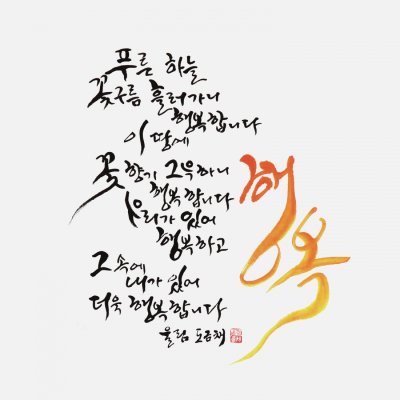 푸른 하늘
꽃구름 흘러가니
행복합니다
이 땅에
꽃향기 그윽하니
행복합니다
우리가 있어
행복하고
그 속에
내가 있어
더욱 행복합니다
울림 도곰채
행복